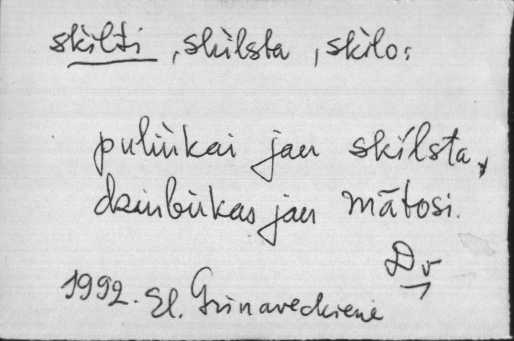 skìlti, skìlsta, skìlo:
puliùkai jau skìlsta,
dziubùkas jau mãtosi.
Dv
1992. El. Grinaveckienė